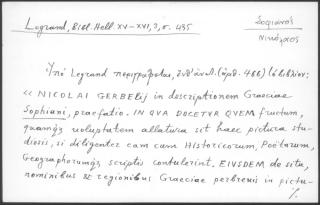 Legrand, Bibl. Hell. XV–XVI, 3, σ. 435
Σοφιανός
Νικόλαος
Ὑπὸ Legrand περιγράφεται, ἔνθ' ἀν. (ἀρθ. 486) τὸ βιβλίον:
« NICOLAI GERBELij in descriptionem Graeciae
Sophiani, praefatio. IN QVA DOCETVR QVEM fructum,
quamq́; voluptatem allatura sit haec pictura stu-
diosis, si diligenter eam cum Historicorum, Poëtarum,
Geographorumq́; scriptis contulerint. EIVSDEM de situ,
nominibus & regionibus Graeciae perbrevis in pictu-
·/.